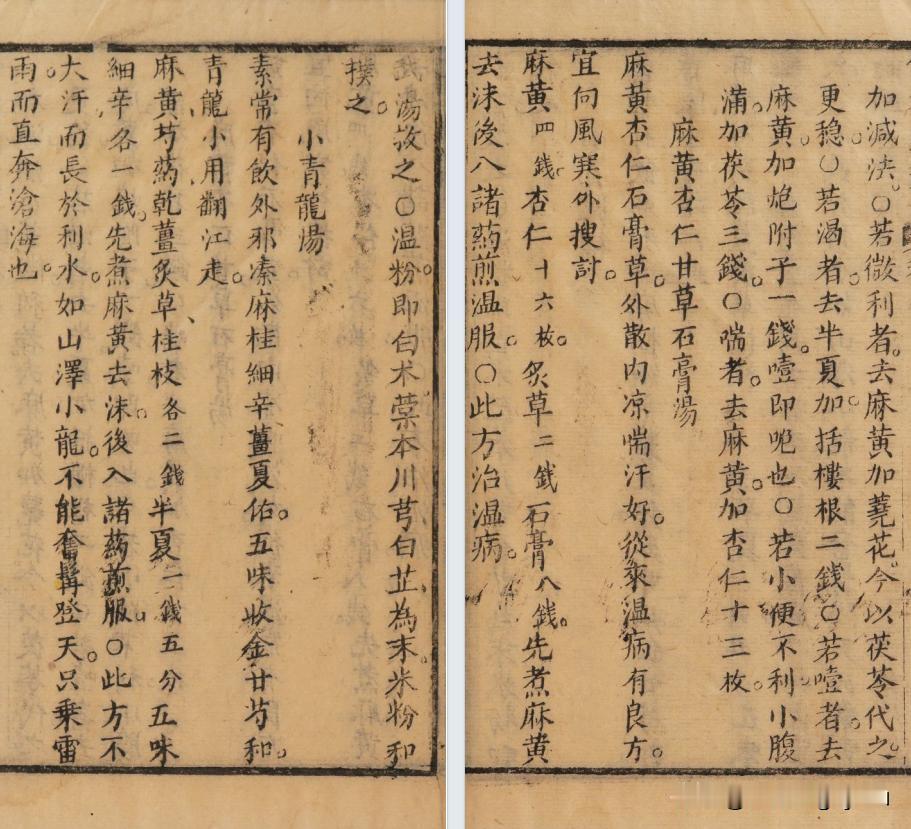 加減決。○若微利者。去麻黄加蕘花。今以茯苓代之。
更稳。○若渴者。去半夏。加括樓根二錢。○若噎者。去
麻黄。加炮附子一錢。噎即呃也。○若小便不利。小腹
滿。加茯苓三錢。○喘者。去麻黄。加杏仁十三枚。
麻黄杏仁甘草石膏湯
麻黄杏仁石膏草。外散内凉喘汗好。從來温病有良方。
宜向風寒外搜討。
麻黄四錢。杏仁十六枚。炙草二錢石膏八錢。先煮麻黄
去沫後入諸药煎温服。○此方治温病。
湯敌之。○温粉即白术藁本川芎白芷為末。米粉和
撲之。
小青龍湯
素常有飲外邪凑。麻桂細辛薑夏佑。五味收金甘芍和。
青龍小用翻江走。
麻黄芍药乾薑炙草桂枝各二錢半夏二錢五分五味
細辛各一錢。先煮麻黄去沫。後入諸药煎服。○此方不
大汗而長於利水。如山澤小龍。不能奮髯登天。只乗雷
雨而直奔滄海也。